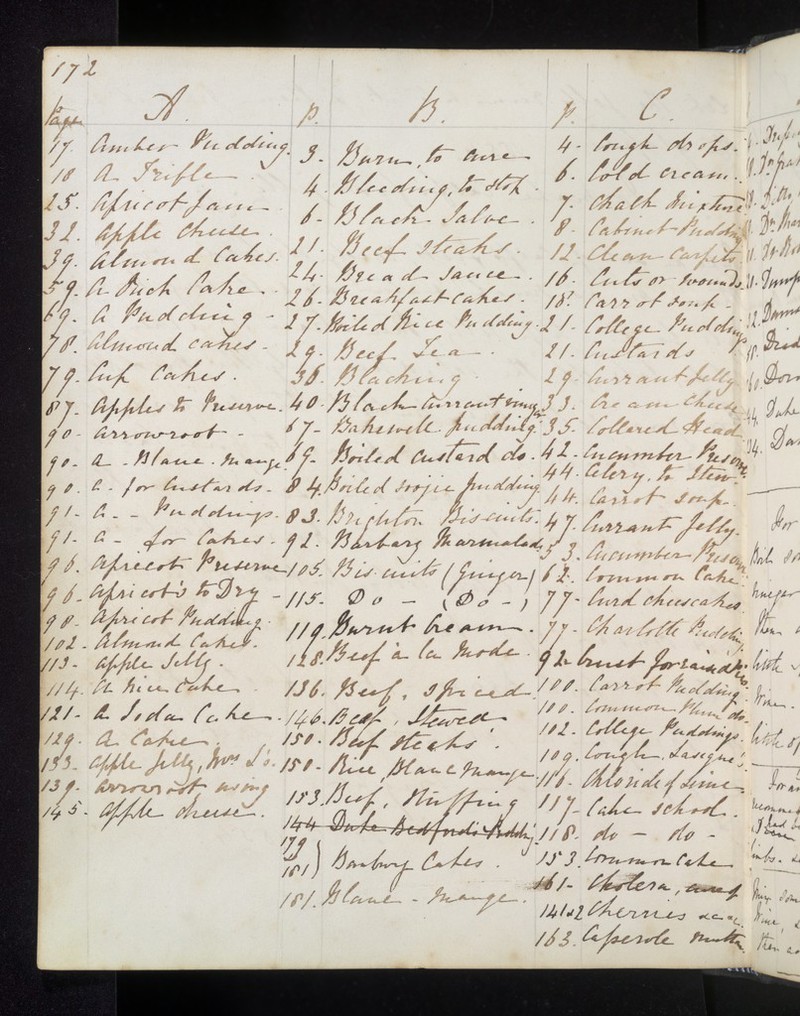 172
Page A.
17. Amber Pudding.
18 A Trifle
25. Apricot Jam
32. Apple Cheese.
39. Almond Cakes.
59. A Rich Cake.
69. A Pudding
78. Almond cakes.
79. Cup Cakes.
87. Apples to Preserve.
90. Arrowroot
90. a - Blanc. mange.
90. a. for Custards.
91. a - - Puddings.
91. a - for Cakes.
96. Apricot Preserve
96. Apricot's to Dry
98. Apricot Pudding.
102. Almond Cakes.
113. Apple Jelly.
114. A nice Cake
121. A Soda Cake.
129. A Cake
133. Apple Jelly, Mrs
139. Arrowroot using
145. Apple cheese.
p. B.
3. Burn, to cure
4. Bleeding, to stop.
6. Black Salve.
21. Beef steaks.
24. Bread Sauce.
26. Breakfast cakes.
27. Boiled Rice Pudding.
29. Beef Tea
36. Blacking
40. Black Currant vinegr
67. Bakewell pudding
69. Boiled Custard do.
84. Boiled soojie pudding
83. Brighton Biscuits.
92. Barbary Marmalade
105. Biscuits (Ginger)
115. Do - (Do -)
119. Burnt Cream.
128. Beef à la Mode.
136. Beef, Spiced
146. Beef, Stewed
150. Beef steaks.
150. Rice Blanc mange
153. Beef, Stuffing
144 Duke Bedfords Pudding
179 &
181) Banbury Cakes.
181. Blanc-mange.
p. C.
4. Cough drops.
6. Cold cream.
7. Chalk Mixture
8. Cabinet Pudding
12. Clean Carpets
16. Cuts or Wounds.
18? Carrot soup
21. College Puddings
21. Custards
29. Currant Jelly
33. Cream Cheese
35. Collared Head
42. Cucumber Preserve
44. Celery, to Stew
44. Carrot soup.
47. Currant Jelly.
53. Cucumber Preserve
62. Common Cake
77. Curd cheesecakes.
77. Charlotte Pudding
92. Crust for raised Pies.
100. Carrot Pudding
100. Common Plum do.
102. College Puddings.
109. Cough,
116. Chloride of Lime
117. Cake school.
118. do - do -
153. Common Cake
161. Cholera,
141&2 Cherries
163. Casserole mutton
For
Boil
vinegar
then
little
Wine.
little of
then